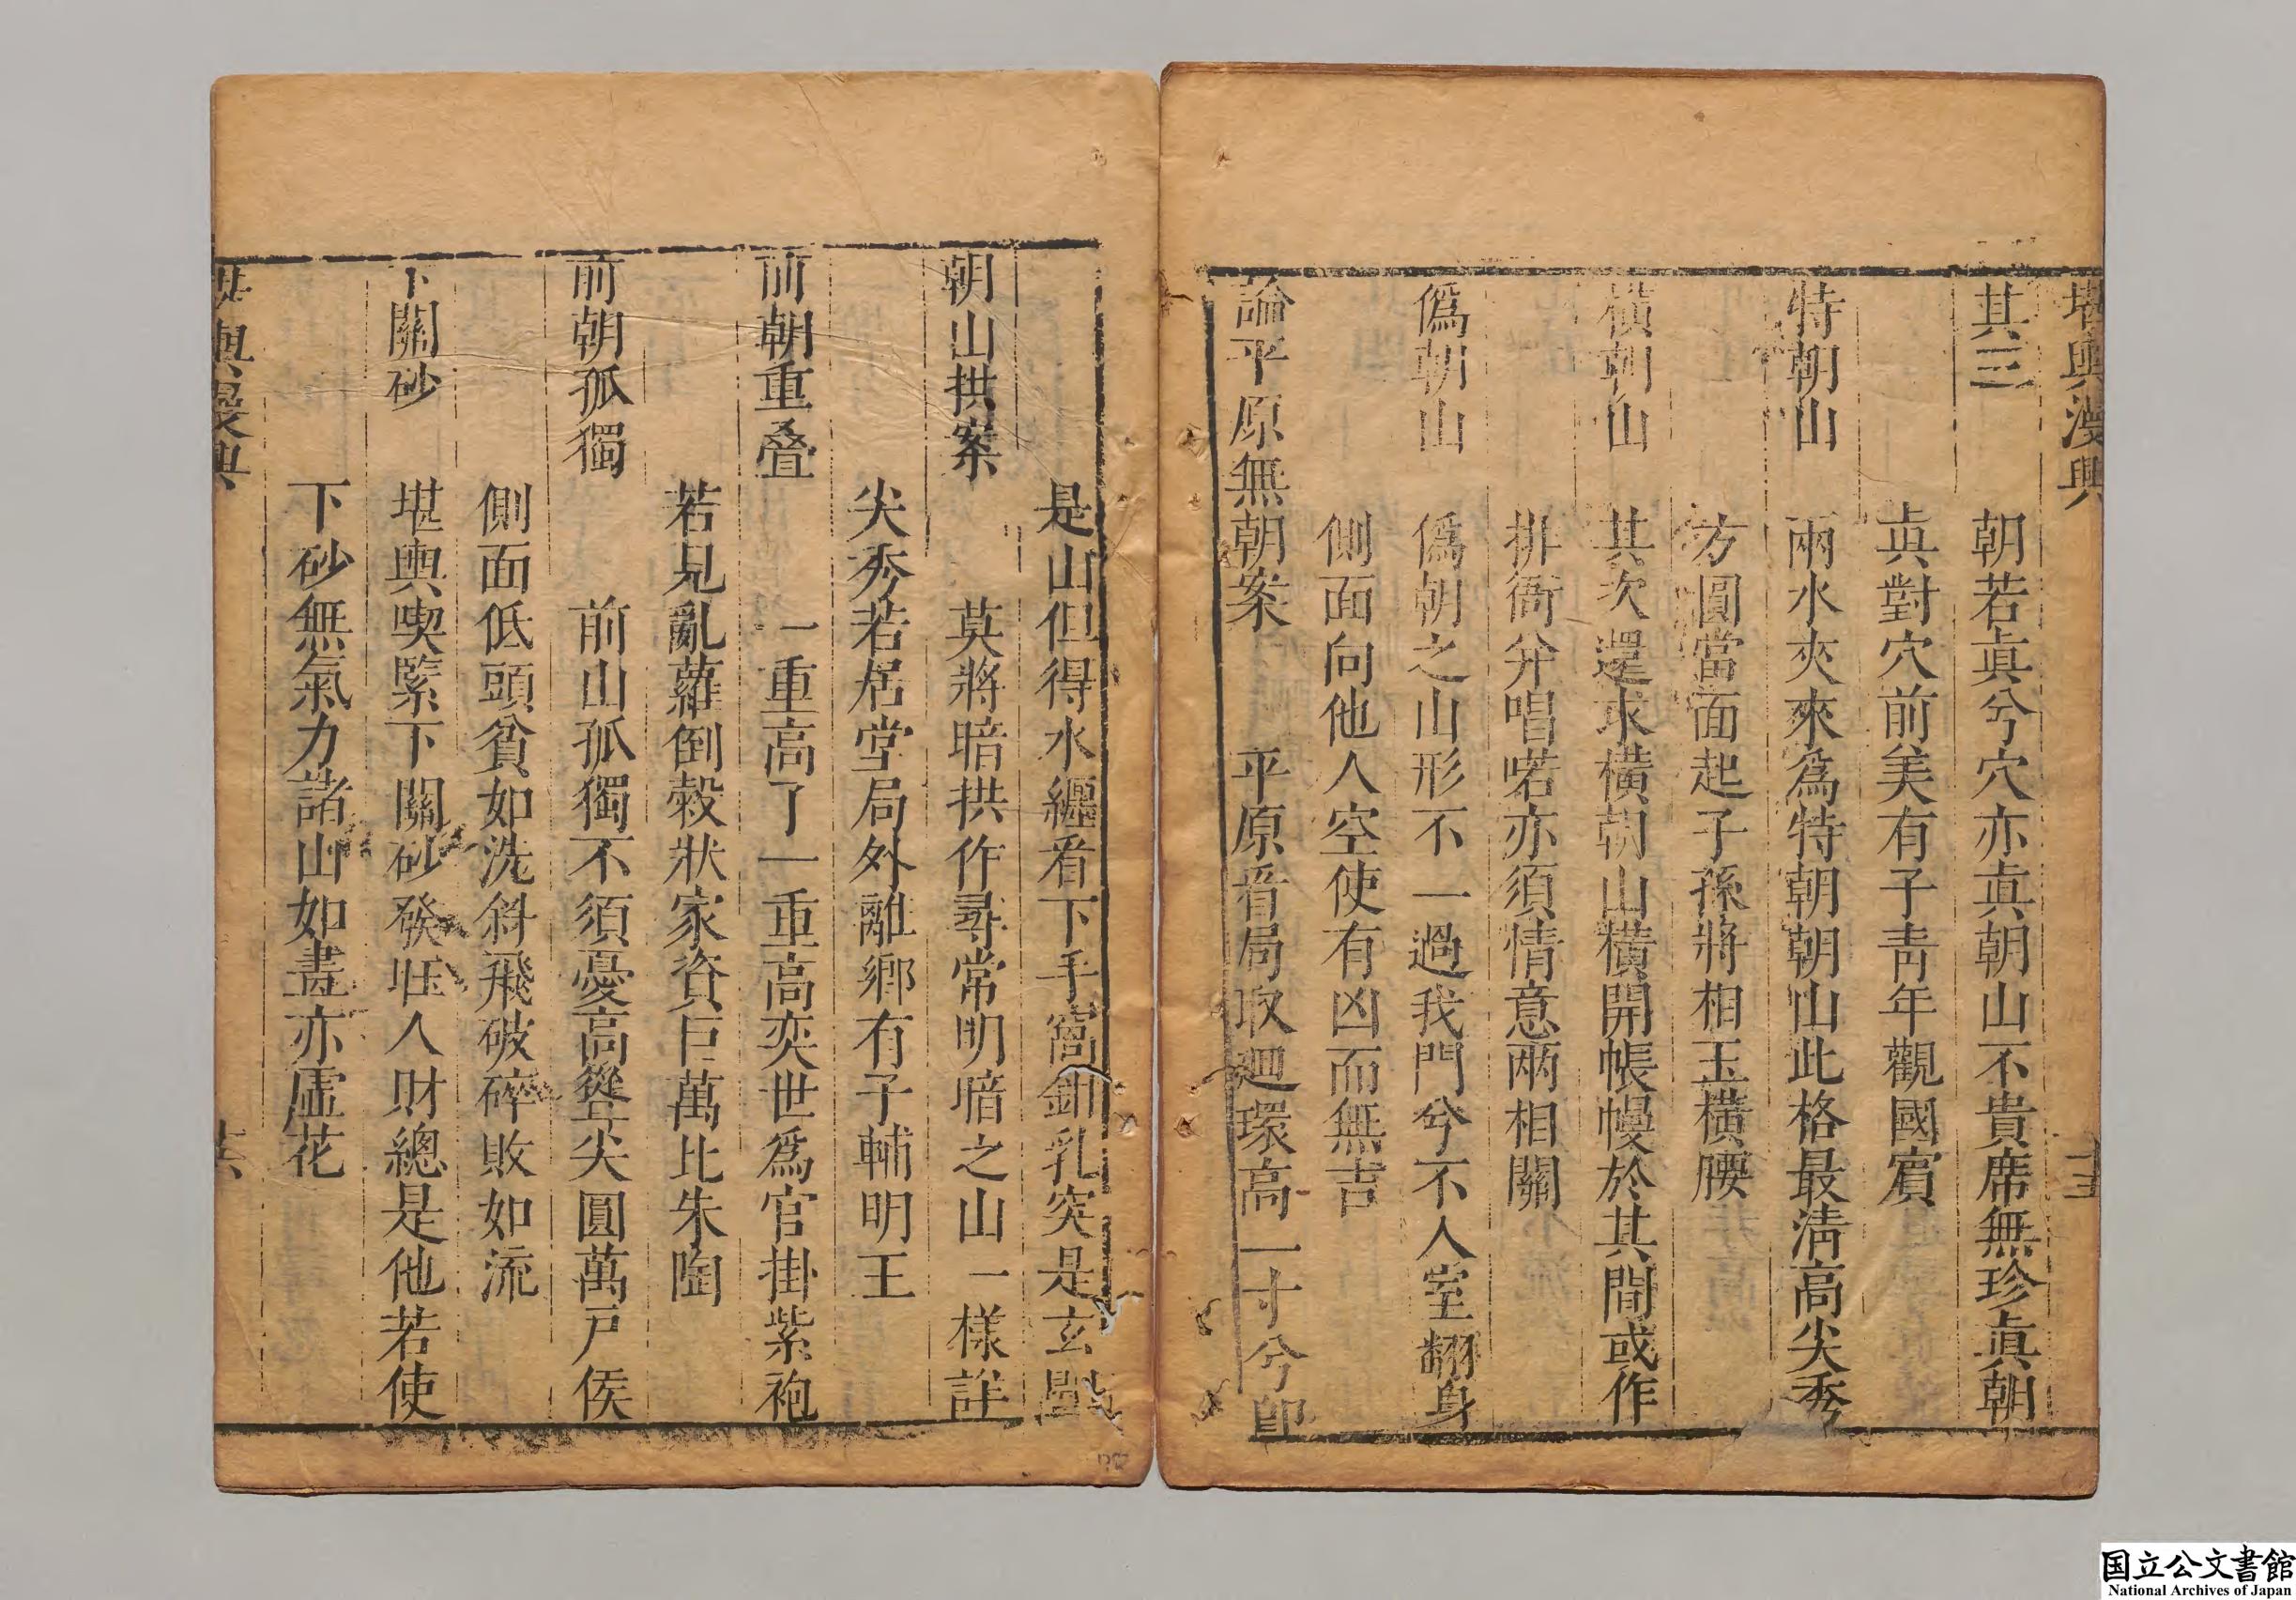 堪輿漫興
十五
其三
朝若眞兮穴亦眞朝山不貴席無珍眞朝
眞對穴前美有子靑年觀國賓
特朝山
兩水夾來爲特朝朝山此格最淸高尖秀
方圓當面起子孫將相玉橫腰
橫朝山
其次還求橫朝山橫開帳幔於其間或作
排衙并唱喏亦須情意兩相關
僞朝山
僞朝之山形不一過我門兮不入室翻身
側面向他人空使有凶而無吉
論平原無朝案
平原看局取迴環高一寸兮卽
是山但得水纏看下手窩鉗乳突是玄
朝山拱案
莫將暗拱作尋常明暗之山一樣詳
尖秀若居堂局外離鄉有子輔明王
前朝重疊
一重高了一重高奕世爲官掛紫袍
若見亂蘿倒穀狀家資巨萬比朱陶
前朝孤獨
前山孤獨不須憂高聳尖圓萬戸侯
側面低頭貧如洗斜飛破碎敗如流
下關砂
堪輿喫緊下關砂發旺人財總是他若使
下砂無氣力諸山如畫亦虛花
堪輿漫興
十六
国立公文書館
National Archives of Japan